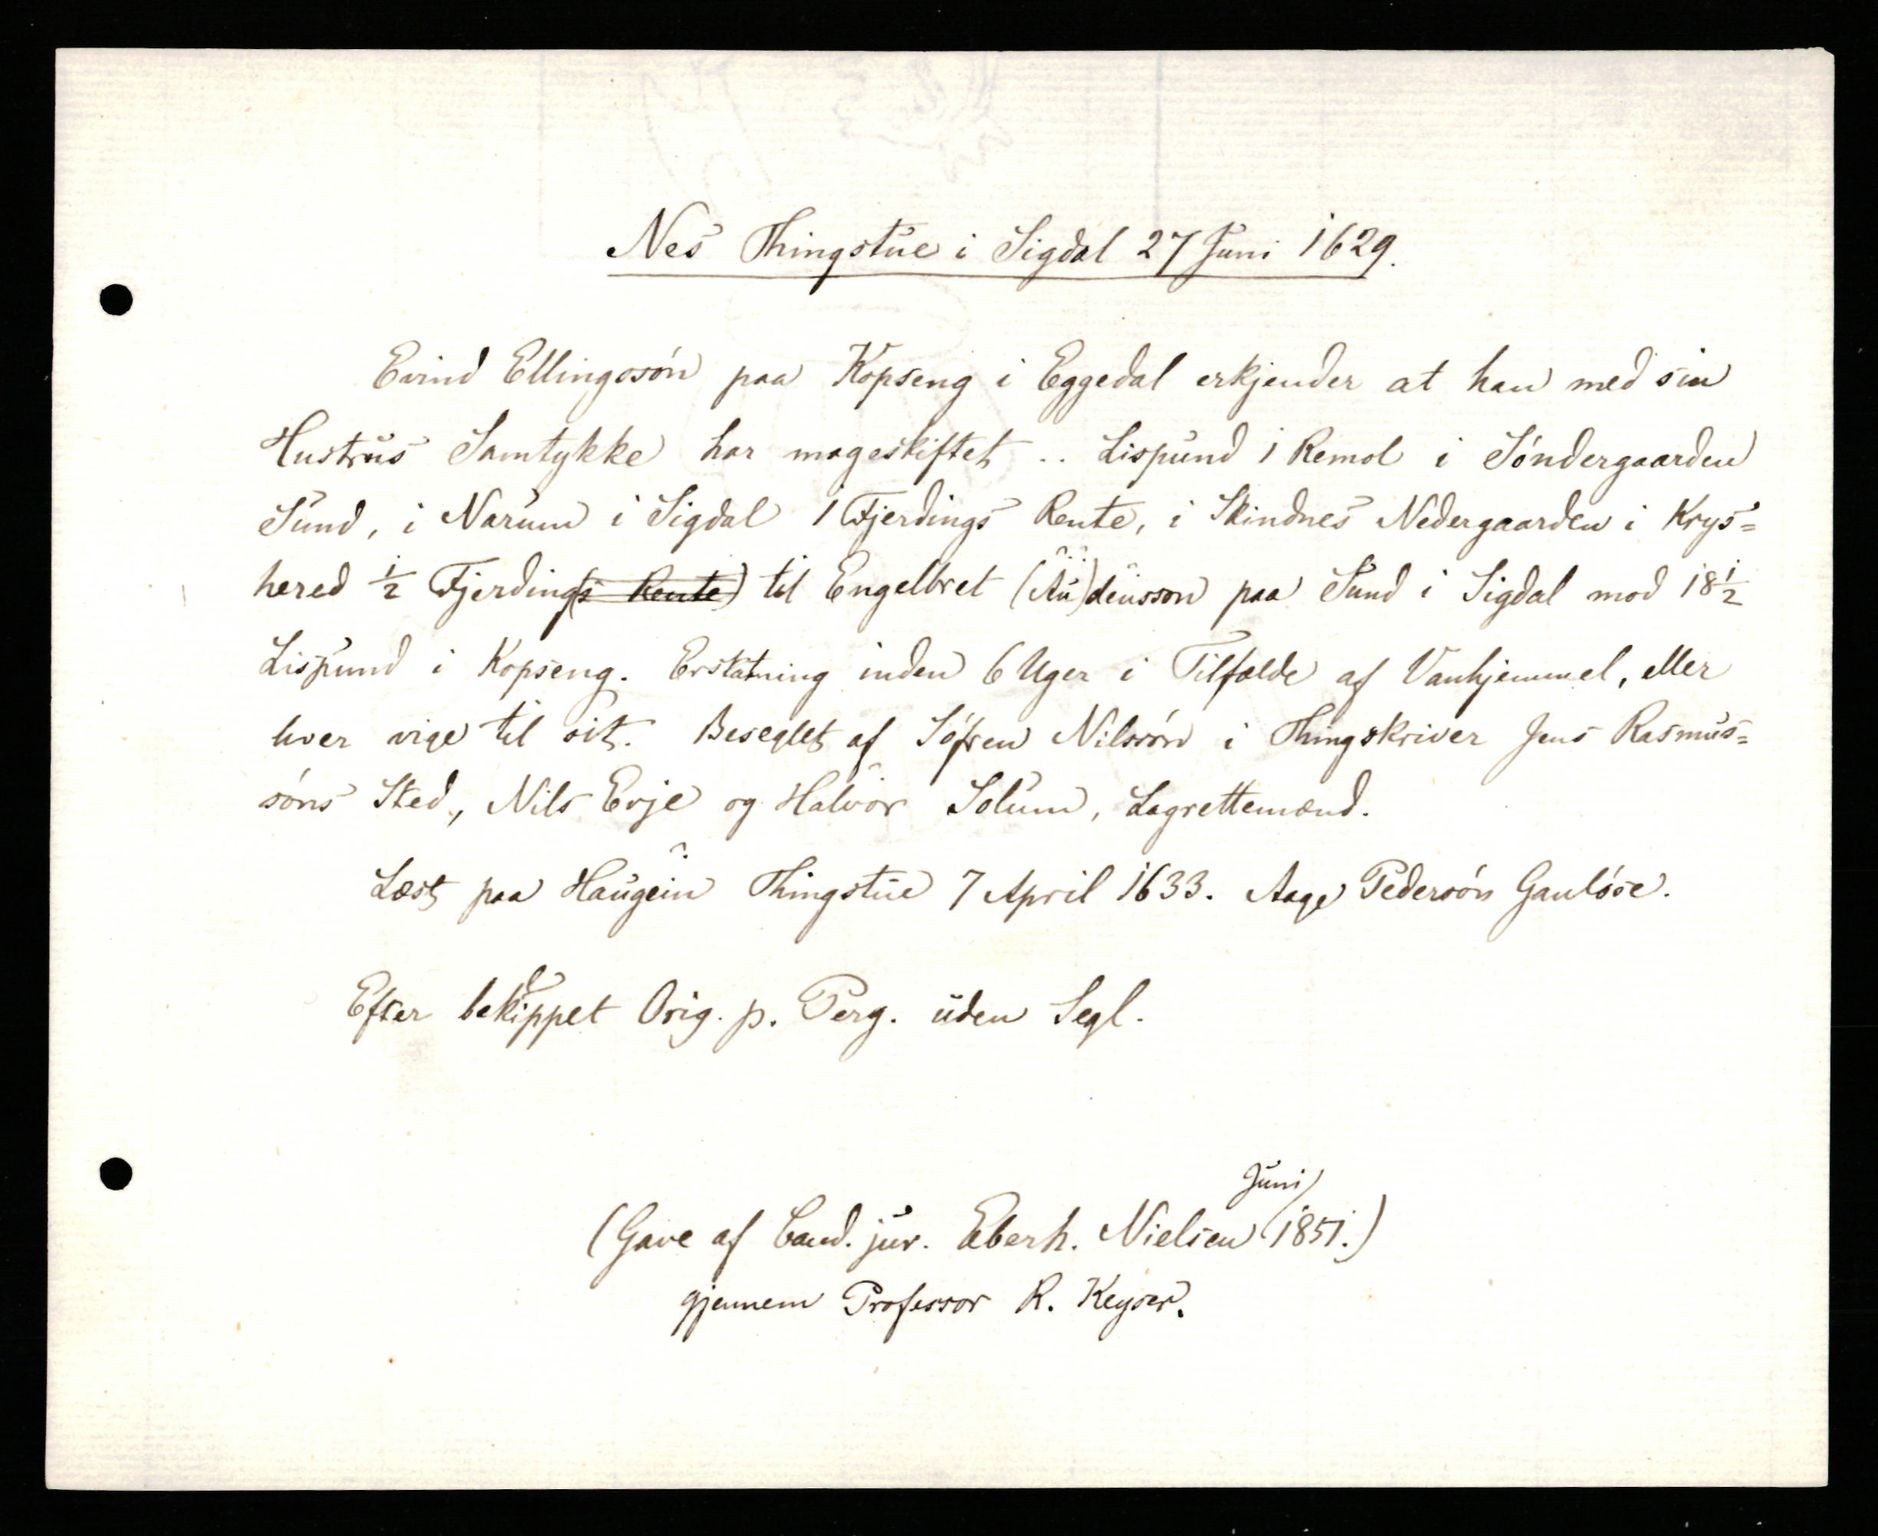 Nes Thingstue i Sigdal 27 Juni 1629.
Evind Ellingssön paa Kopseng i Eggedal erkjender at han med sin
Hustrus Samtykke har mageskiftet .. Lispund i Remol i Söndergaarden
Sund, i Narum i Sigdal 1 Fjerdings Rente, i Skindnes Nedergaarden i Krys=
hered ½ Fjerding(s Rente) til Engelbret (Au)densson paa Sund i Sigdal mod 18½
Lispund i Kopseng. Erstatning inden 6 Uger i Tilfælde af Vanhjemmel, eller
hver vige til sit. Beseglet af Söfren Nilssön i Thingskriver Jens Rasmus=
söns Sted, Nils Evje og Halvor Solum, Lagrettemænd.
Læst paa Haugein Thingstue 7 April 1633. Aage Pedersön Gaulöse.
Efter beklippet Orig. p. Perg. uden Segl.
Juni
(Gave af Cand. jur. Eberh. Nielsen 1851.)
gjennem Professor R. Keyser.